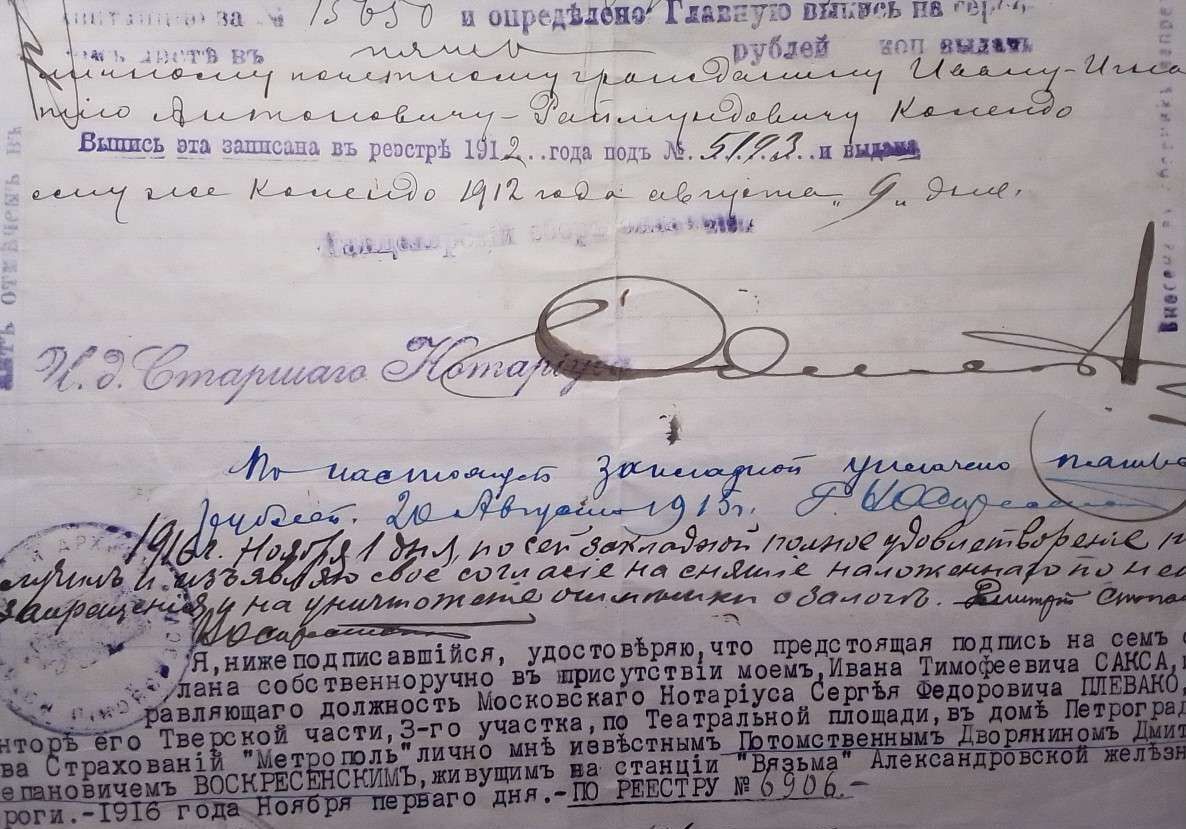 за № 15650 и опредѣлено Главную выпись на
листѣ въ пять рублей коп выдать
личному почетному гражданину Ивану-Игна
тію Антоновичу-Раймундовичу Коллендо
Выпись эта записана въ реэстрѣ 1912..года подъ №.5193.и выдана
ему же Коллендо 1912 года августа „9„ дня.
И.д. Старшаго Нотаріуса
По настоящей закладной уплачено
рублей. 20 Августа 1915г.
1916г. Ноября 1 дня, по сей закладной полное удовлетвореніе по
лучилъ и изъявляю свое согласіе на снятіе наложеннаго по ней
запрещенія и на уничтоженіе отмѣтки о залогѣ. Дмитрій
Воскресенскій
Я,нижеподписавшійся, удостовѣряю,что предстоящая подпись на семъ
лана собственноручно въ присутствіи моемъ,Ивана Тимофеевича САКСА,
равляющаго должность Московскаго Нотаріуса Сергѣя Федоровича ПЛЕВАКО,
нторѣ его Тверской части,3-го участка,по Театральной площади,въ домѣ Петроград
ва Страхованій "Метрополь"лично мнѣ извѣстнымъ Потомственнымъ Дворяниномъ Дмит
епановичемъ ВОСКРЕСЕНСКИМЪ,живущимъ на станціи "Вязьма" Александровской желѣзн
роги.-1916 года Ноября перваго дня.-ПО РЕЕСТРУ № 6906.-